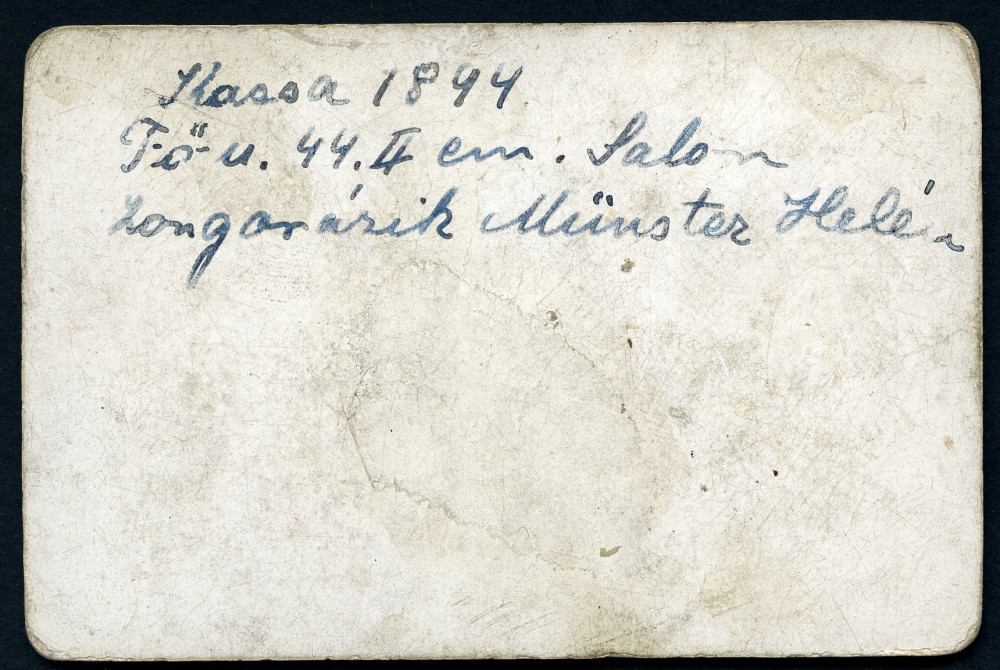 Kassa 1894
Fő u. 44. II em. Salon
Zongorázik Münster Helén